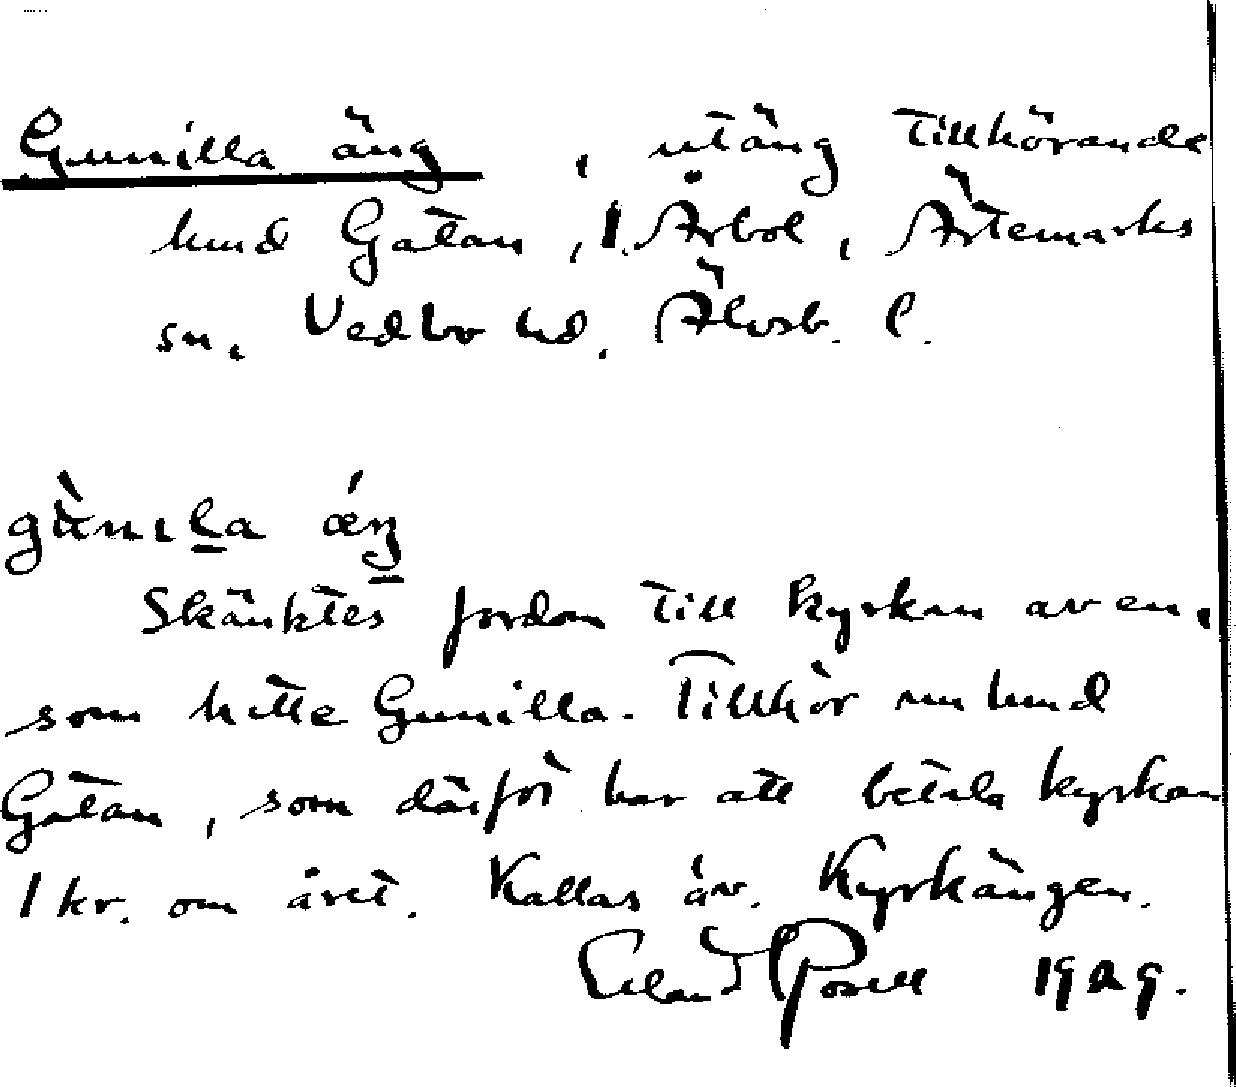 Gunilla äng, utäng tillhörande
hmd Gatan, l. Årbol, Ärtemarks
sn, Vedbo hd. Älvsb. l.
gùnıla ǽŋ
Skänktes fordom till kyrkan av en,
som hette Gunilla. Tillhör nu hmd
Gatan, som därför har att betala kyrkan
1 kr. om året. Kallas äv. Kyrkängen.
Erland Rosell 1929.